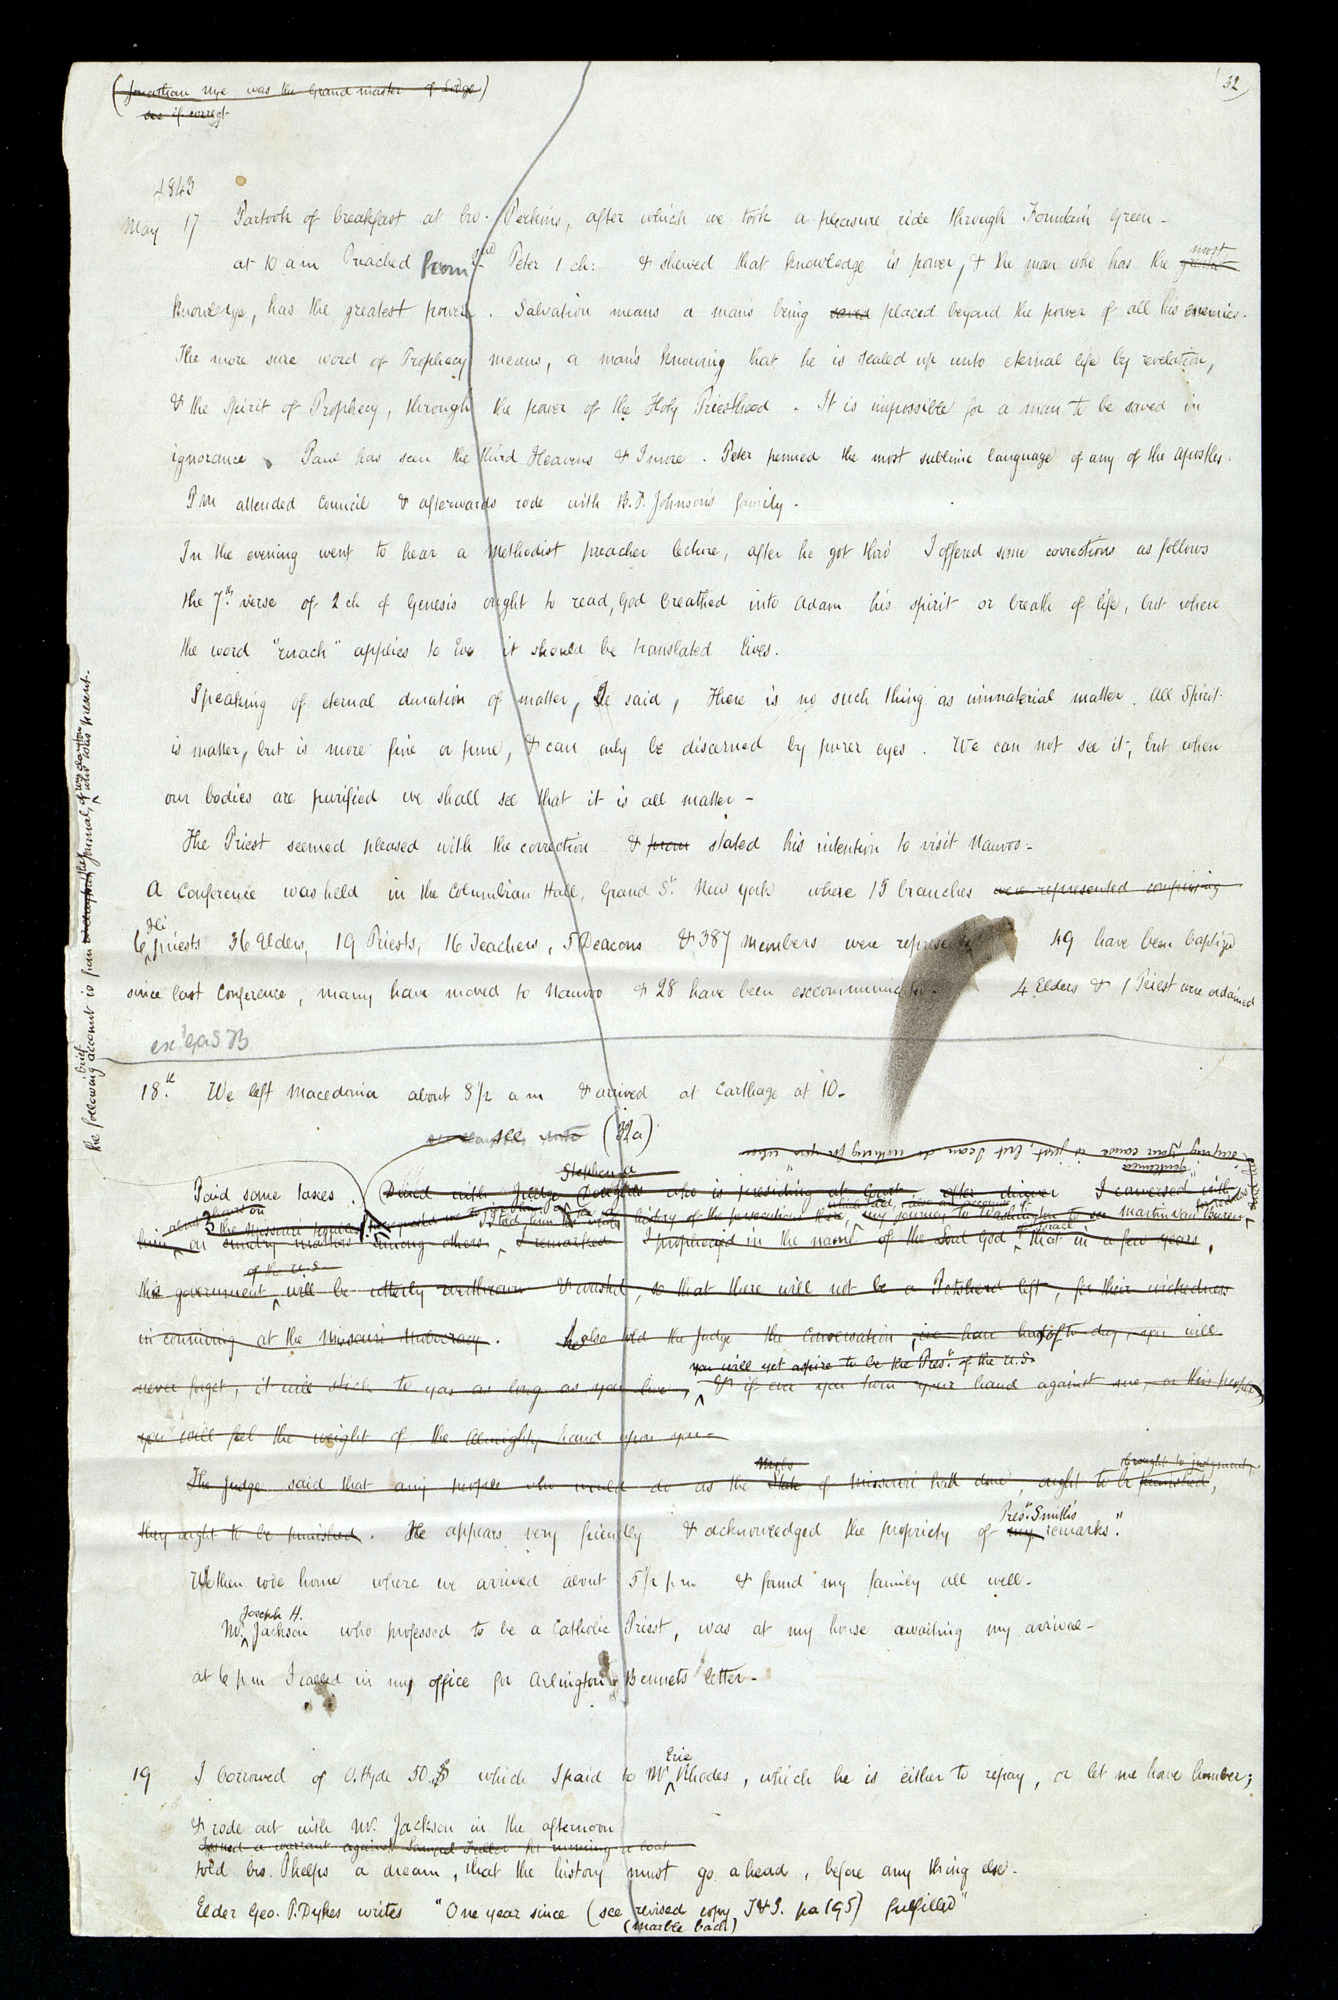 (Jonathan Nye was the Grand master of Lodge)
see if correct
32
1843
May 17 Partook of breakfast at bro. Perkins, after which we took a pleasure ride through Fountain Green -
at 10 am Preached from 2nd Peter 1 ch: & shewed that knowledge is power, & the man who has the most
knowledge, has the greatest power. Salvation means a mans being saved placed beyond the power of all his enemies.
The more sure word of Prophecy means, a man's knowing that he is sealed up unto eternal life by revelation,
& the Spirit of Prophecy, through the power of the Holy Priesthood. It is impossible for a man to be saved in
ignorance. Paul has seen the third Heavens & I more. Peter penned the most sublime language of any of the apostles.
P M attended council & afterwards rode with B. F. Johnson's family.
In the evening went to hear a Methodist preacher lecture, after he got thro' I offered some corrections as follows
the 7th verse of 2 ch of Genesis ought to read, God breathed into Adam his spirit or breath of life, but where
the word "ruach" applies to Eve it should be translated lives.
Speaking of eternal duration of matter, I said, There is no such thing as immaterial matter. All Spirit
is matter, but is more fine or pure, & can only be discerned by purer eyes. We can not see it, but when
our bodies are purified we shall see that it is all matter -
The Priest seemed pleased with the correction & stated his intention to visit Nauvoo -
A Conference was held in the Columbian Hall, Grand St. New York where 15 branches were represented comprising
6 Hi priests 36 Elders, 19 Priests, 16 Teachers, 5 Deacons & 387 members were represented 49 have been baptized
since last Conference, many have moved to Nauvoo & 28 have been excommunicated. 4 Elders & 1 Priest were ordained
the following brief account is from the journal, of Wm Clayton who was present.
18th. We left Macedonia about 8 1/2 a m & arrived at Carthage at 10 -
see (32a)
saying "gentlemen, your cause is just, but I can do nothing for you when
Stephen A
Paid some taxes. (Dined with Judge Douglas who is presiding at Court after dinner I conversed with
him on sundry matters among others I remarked I prophecied in the name of the Lord God that in a few years,
this government of the U.S. will be utterly overthrown & wasted, so that there will not be a Potsherd left, for their wickedness
in conniving at the Missouri Mobocracy. He also told the Judge the conversation we have had of to day, you will
never forget, it will stick to you as long as you live,
you will yet aspire to be the Prest. of the U.S.
& if ever you turn your hand against me, or this people
you will feel the weight of the Almighty hand upon you -
The Judge said that any people who would do as the mobs State of Missouri had done, ought to be brought to judgment, punished,
they ought to be punished. He appears very friendly & acknowledged the propriety of my Prest. Smith's remarks."
We then rode home where we arrived about 5 1/2 p m & found my family all well.
Mr. Joseph H. Jackson who professed to be a Catholic Priest, was at my house awaiting my arrival -
at 6 p m I called in my office for Arlington Bennets letter -
19 I borrowed of O. Hyde 50 $ which I paid to Mr. Eric Rhodes, which he is either to repay, or let me have lumber;
& rode out with Mr. Jackson in the afternoon
Issued a warrant against Samuel Fuller for running a boat
told bro. Phelps a dream, that the history must go ahead, before any thing else.
Elder Geo. P. Dykes writes "One year since (see revised copy T & S. pa 195) fulfilled"
(marble back)